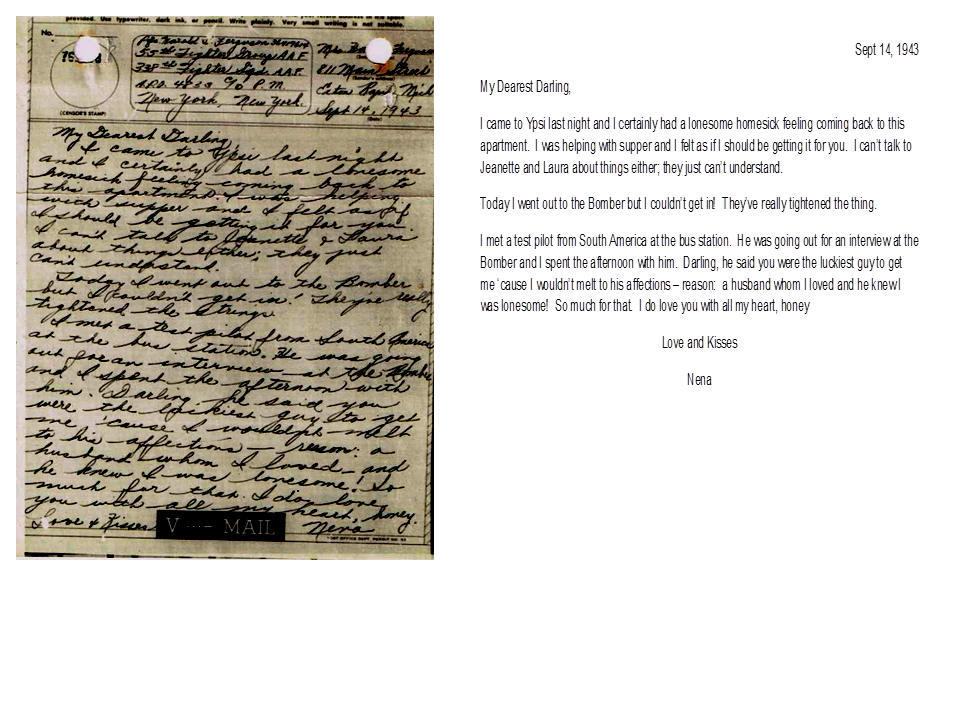 provided. Use typewriter, dark ink, or pencil. Write plainly. Very small writing is not suitable.
No.
(CENSOR'S STAMP)
Harold
55th Fighter Group AAF
338th Fighter Sqd. AAF.
A.P.O. 4833 c/o P.M.
New York, New York.
Mrs.
811 Main Street
(Sender's address)
Eaton Rapids, Mich
Sept 14, 1943
(Date)
My Dearest Darling,
I came to Ypsi last night
and I certainly had a lonesome
homesick feeling coming back to
this apartment. I was helping
with supper and I felt as if
I should be getting it for you.
I can't talk to Jeanette & Laura
about things either; they just
can't understand.
Today I went out to the Bomber
but I couldn't get in! They've really
tightened the strings.
I met a test pilot from South America
at the bus station. He was going
out for an interview at the Bomber
and I spent the afternoon with
him. Darling, he said you
were the luckiest guy to get
me 'cause I wouldn't melt
to his affections – reason: a
husband whom I loved – and
he knew I was lonesome! So
much for that. I do love
you with all my heart, honey.
Love & Kisses
Nena
V ···– MAIL
Sept 14, 1943
My Dearest Darling,
I came to Ypsi last night and I certainly had a lonesome homesick feeling coming back to this
apartment. I was helping with supper and I felt as if I should be getting it for you. I can't talk to
Jeanette and Laura about things either; they just can't understand.
Today I went out to the Bomber but I couldn't get in! They've really tightened the thing.
I met a test pilot from South America at the bus station. He was going out for an interview at the
Bomber and I spent the afternoon with him. Darling, he said you were the luckiest guy to get
me 'cause I wouldn't melt to his affections – reason: a husband whom I loved and he knew I
was lonesome! So much for that. I do love you with all my heart, honey
Love and Kisses
Nena